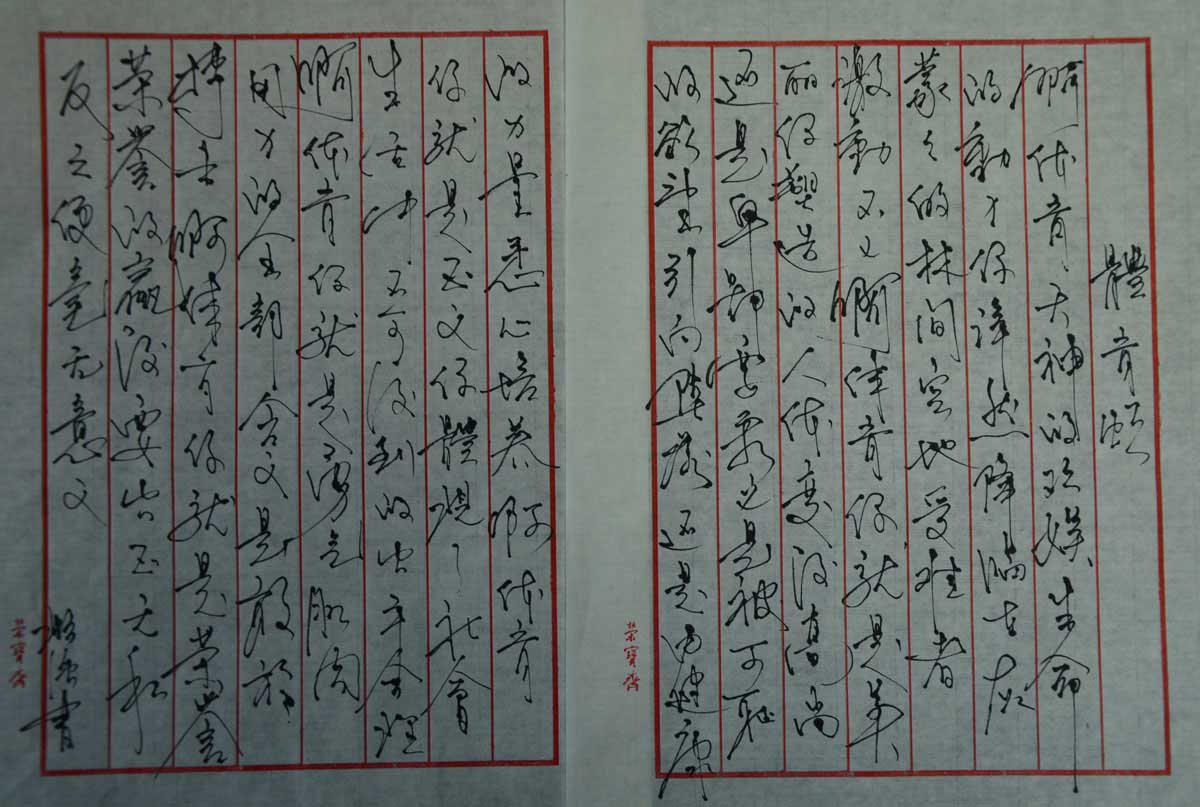 體育頌
啊体育天神的欢娱生命
的動力你诤然降临在灰
蒙々的林间空地受难者
激動不已啊体育你就是美
丽你塑造的人体变得高尚
还是卑鄙要看它是被可耻
的欲望引向堕落还是由健康
的力量悉心培养啊体育
你就是正义你體现了社會
生活中不可得到的公平合理
啊体育你就是勇气肌肉
用力的全部含义是敢於
搏击啊体育你就是荣誉
荣誉的赢得要公正无私
反之便毫无意义
書
荣寶齋
荣寶齋